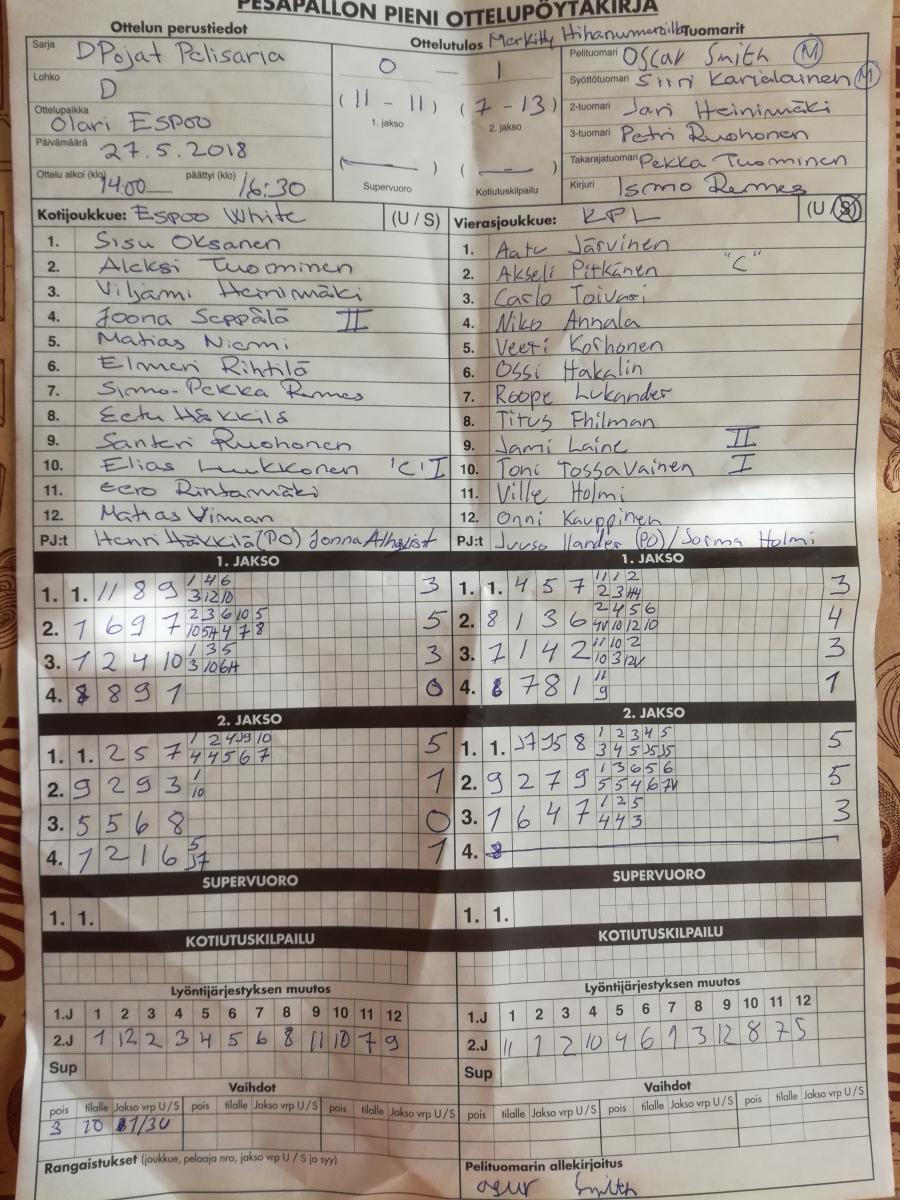 PESÄPALLON PIENI OTTELUPÖYTÄKIRJA
Ottelun perustiedot
Sarja DPojat Pelisarja
Lohko D
Ottelupaikka Olari Espoo
Päivämäärä 27.5.2018
Ottelu alkoi (klo) 14:00 päättyi (klo) 16:30
Ottelutulos Merkitty Hihanumeroilla
0 — 1
(11 - 11) (7 - 13)
1. jakso 2. jakso
( — ) ( — )
Supervuoro Kotiutuskilpailu
Tuomarit
Pelituomari Oscar Smith (M)
Syöttötuomari Siiri Karjalainen (M)
2-tuomari Jari Heinimäki
3-tuomari Petri Ruohonen
Takarajatuomari Pekka Tuominen
Kirjuri Ismo Remes
Kotijoukkue: Espoo White (U / S)
1. Sisu Oksanen
2. Aleksi Tuominen
3. Viljami Heinimäki
4. Joona Seppälä II
5. Matias Niemi
6. Elmeri Rihtilä
7. Simo-Pekka Remes
8. Eetu Häkkilä
9. Santeri Ruohonen
10. Elias Luukkonen "C" I
11. Eero Rintamäki
12. Matias Viman
PJ:t Henri Häkkilä (PO) Jonna Alhqvist
Vierasjoukkue: KPL (U / S)
1. Aatu Järvinen
2. Akseli Pitkänen "C"
3. Carlo Toivari
4. Niko Annala
5. Veeti Korhonen
6. Ossi Hakalin
7. Roope Lukander
8. Titus Fhilman
9. Jami Laine II
10. Toni Tossavainen I
11. Ville Holmi
12. Onni Kauppinen
PJ:t Juuso Ilander (PO) / Jorma Holmi
1. JAKSO
1. 1. 11 8 9 1 4 6 3
3 12 10
2. 1 6 9 7 2 3 6 10 5 5
10 5H 4 7 8
3. 1 2 4 10 1 3 5 3
3 10 6H
4. 8 8 9 1 0
1. JAKSO
1. 1. 4 5 7 11 1 2 3
2 3 H4
2. 8 1 3 6 2 4 5 6 4
4V 10 12 10
3. 7 1 4 2 11 10 2 3
10 3 12V
4. 8 7 8 1 11 1
9
2. JAKSO
1. 1. 2 5 7 1 2 4 J9 10 5
4 4 5 6 7
2. 9 2 9 3 1 1
10
3. 5 5 6 8 0
4. 1 2 1 6 5 1
J7
2. JAKSO
1. 1. J7 J5 8 1 2 3 4 5 5
3 4 5 J5 J5
2. 9 2 7 9 1 3 6 5 6 5
5 5 4 6 7V
3. 1 6 4 7 1 2 5 3
4 4 3
4. 8
SUPERVUORO
1. 1.
SUPERVUORO
1. 1.
KOTIUTUSKILPAILU
KOTIUTUSKILPAILU
Lyöntijärjestyksen muutos
1.J 1 2 3 4 5 6 7 8 9 10 11 12
2.J 1 12 2 3 4 5 6 8 11 10 7 9
Sup
Lyöntijärjestyksen muutos
1.J 1 2 3 4 5 6 7 8 9 10 11 12
2.J 11 1 2 10 4 6 9 3 12 8 7 5
Sup
Vaihdot
pois tilalle Jakso vrp U / S pois tilalle Jakso vrp U / S pois tilalle Jakso vrp U / S
3 10
Vaihdot
pois tilalle Jakso vrp U / S pois tilalle Jakso vrp U / S pois tilalle Jakso vrp U / S
Rangaistukset (joukkue, pelaaja nro, jakso vrp U / S ja syy)
Pelituomarin allekirjoitus
Smith